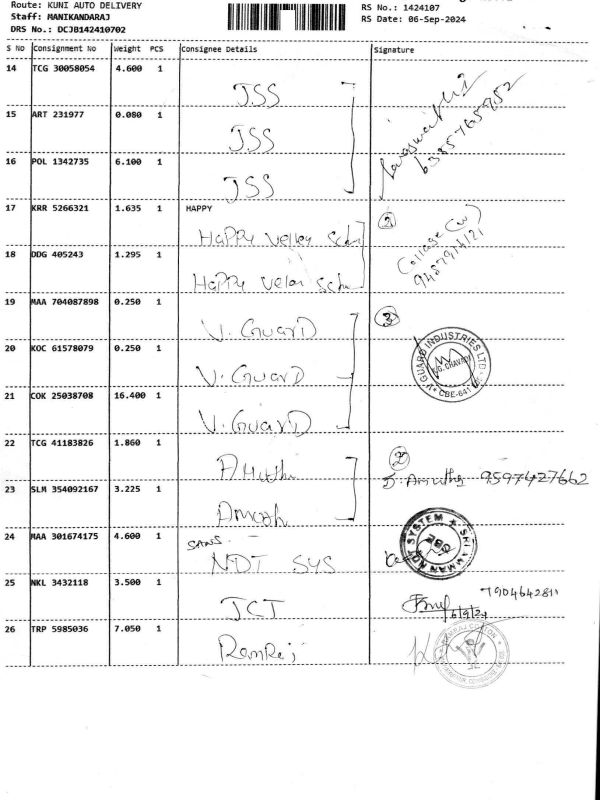 Route: KUNI AUTO DELIVERY
Staff: MANIKANDARAJ
DRS No.: DCJB142410702
RS No.: 1424107
RS Date: 06-Sep-2024
S No Consignment No Weight PCS Consignee Details Signature
14 TCG 30058054 4.600 1 JSS
15 ART 231977 0.080 1 JSS
6385765852
16 POL 1342735 6.100 1 JSS
17 KRR 5266321 1.635 1 HAPPY
Happy Velley Sch
2
College (w)
18 DDG 405243 1.295 1
Happy Sch
19 MAA 704087898 0.250 1 V. Guard
3
20 KOC 61578079 0.250 1 V. Guard
V-GUARD INDUSTRIES LTD
21 COK 25038708 16.400 1 V. Guard
22 TCG 41183826 1.860 1
2
9597427662
23 SLM 354092167 3.225 1
24 MAA 301674175 4.600 1
NDT SYS
SRI AMMAN NDT SYSTEM
CBE
25 NKL 3432118 3.500 1 JCT
7904642811
6/9/24
26 TRP 5985036 7.050 1 RamRaj